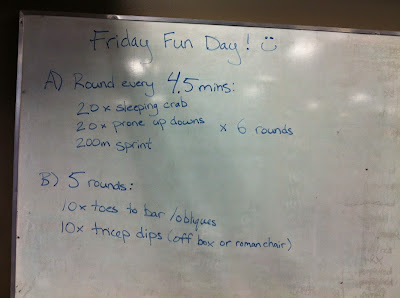 Friday Fun Day! :)
A) Round every 4.5 mins:
20x sleeping crab
20x prone up downs x 6 rounds
200m sprint
B) 5 rounds:
10x toes to bar/obliques
10x tricep dips (off box or roman chair)